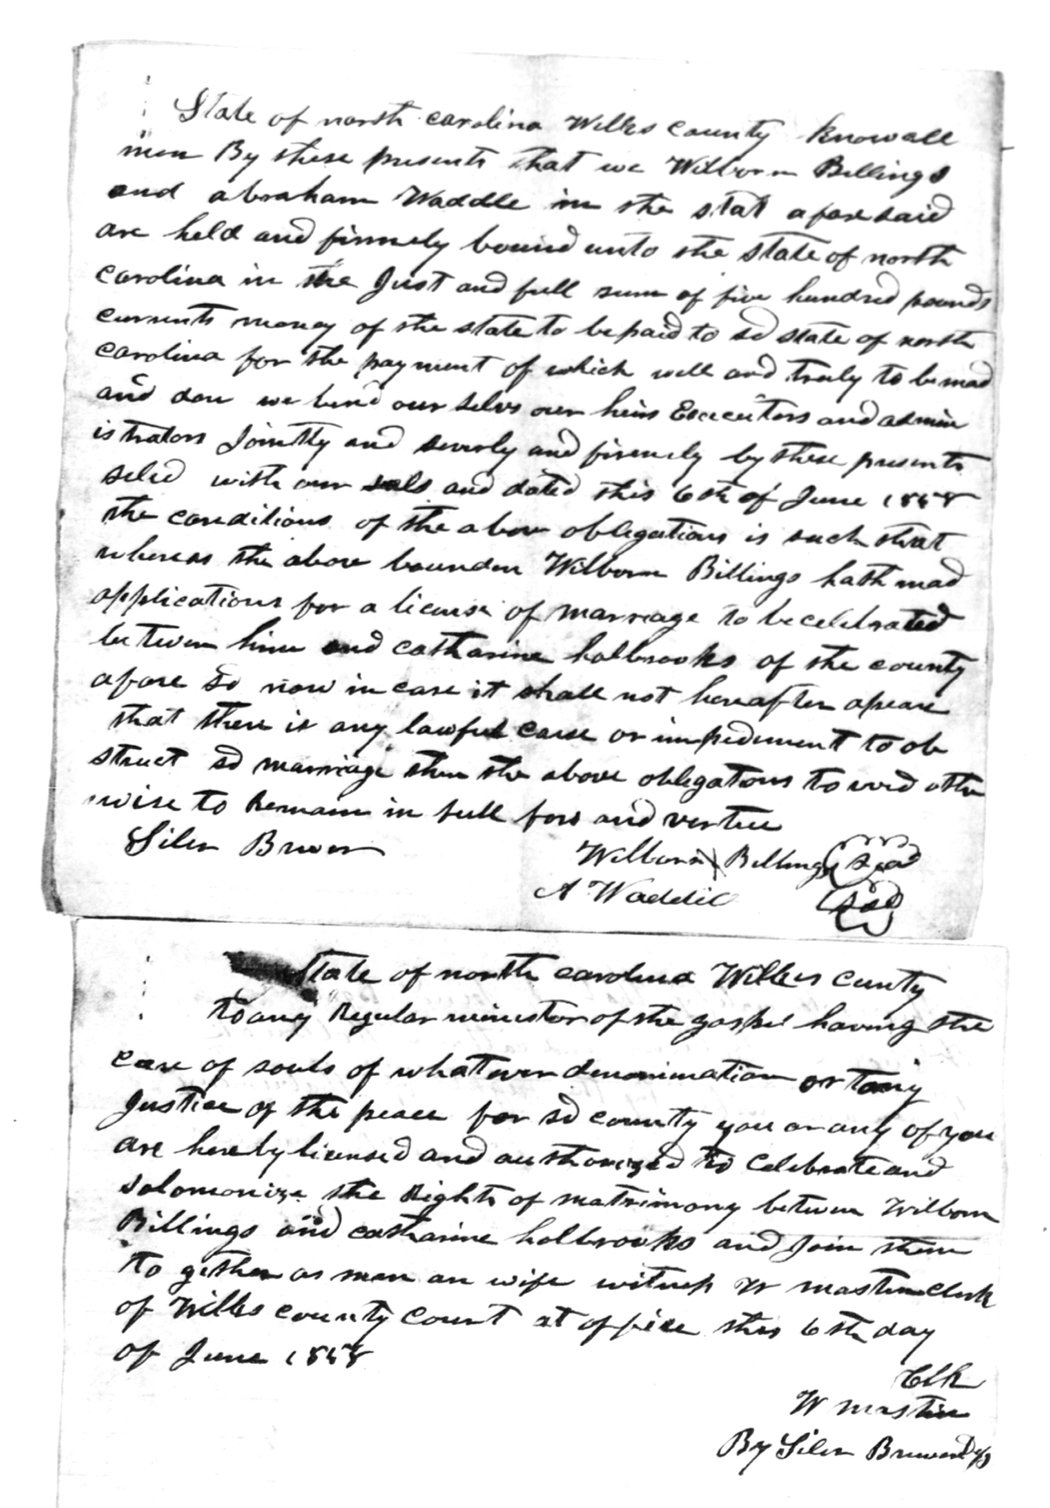 State of north carolina Wilkes county Know all
men By these presents that we Wilborn Billings
and abraham Waddle in the stat afore said
are held and firmely bound unto the state of north
carolina in the Just and full sum of five hundred pounds
currents money of the state to be paid to sd state of north
carolina for the payment of which well and truly to be mad
and don we bend our selvs our heirs Executors and admin
istrators Jointly and severly and firmely by these presents
seled with our seals and dated this 6th of June 1858
the conditions of the above oblegations is such that
whereas the above bounden Wilborn Billings hath mad
applications for a license of marriage to be celebrated
between him and catharine holbrooks of the county
afore sd now in case it shall not hereafter apeare
that there is any lawful cause or impedement to ob
struct sd marriage then the above obligations to void other
wise to Remain in full fors and vertue
Siler Brewer
Wilborn X Billings Seal
A Waddle Seal
State of north carolina Wilkes cunty
to any Regular minister of the gospel having the
care of souls of whatever denomination or to any
Justice of the peace for sd county you or any of you
are hereby licensed and authorized to celebrate and
solomonize the Rights of matrimony between Wilborn
Billings and catharine holbrooks and Join them
to gether as man an wife witness W mastin clerk
of Wilkes county court at office this 6th day
of June 1858
Clk
W mastin
By Siler Brewer